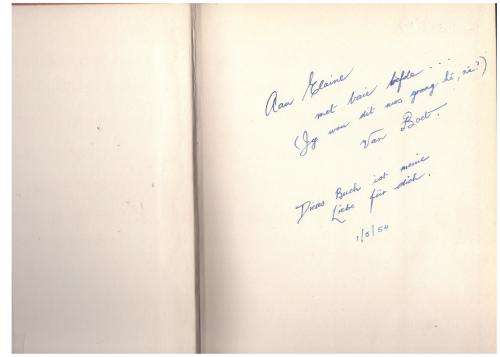 Aan Elaine
met baie liefde ...
(Jy wou dit mos graag hê, nè?)
Van Boet.
Dieses Buch ist meine
Liebe für dich.
1/5/54